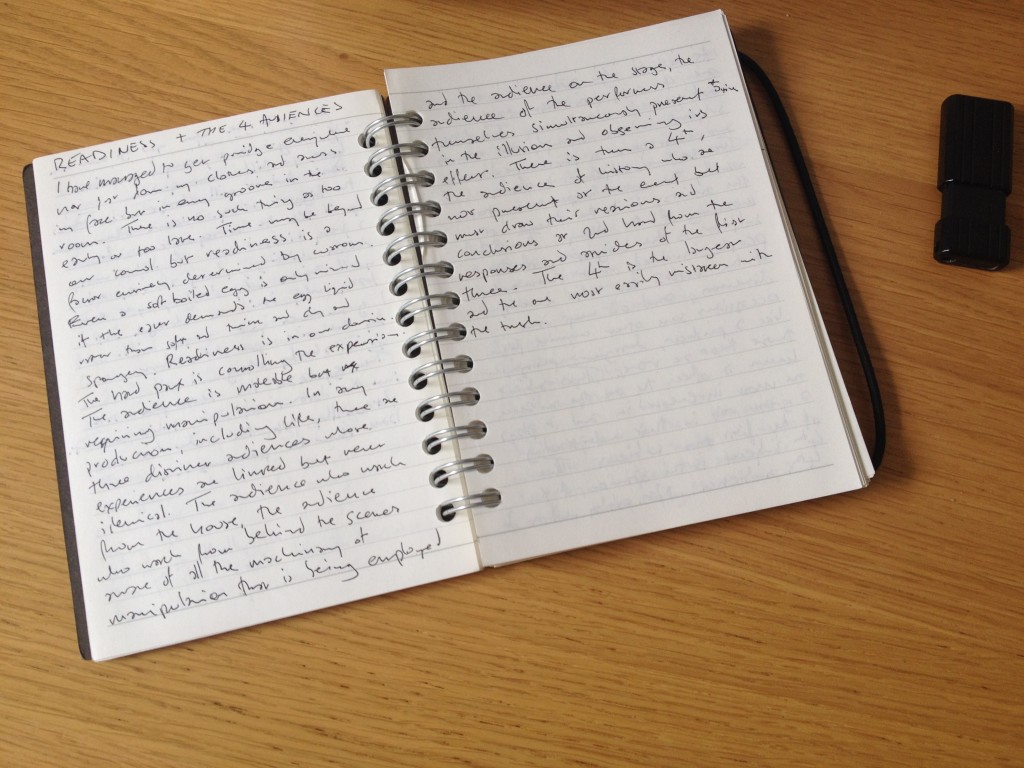 READINESS + THE 4 AUDIENCES
I have managed to get porridge everywhere
not just on my clothes and arms
in face but in any groove in the
room. There is no such thing as too
early or too late. Time may be beyond
our control but readiness is a
power entirely determined by wisdom.
Even a soft boiled egg is only ruined
if the eater demands the egg liquid
rather than soft and twice and dry and
spongey. Readiness is in our domain
The hard part is controlling the experience
The audience is moveable but
requiring manipulation. In any
production, including life, there are
three distinct audiences whose
experiences are linked but never
identical. The audience who watch
from the house, the audience
who watch from behind the scenes
aware of all the machinery of
manipulation that is being employed
and the audience on the stage, the
audience of the performers
themselves simultaneously present
in the illusion and observing its
effect. There is then a 4th,
the audience of history who are
not present at the event but
must draw their versions and
conclusions at 2nd hand from the
responses and asides of the first
three. The 4th is the largest
and the one most easily mistaken with
the truth.